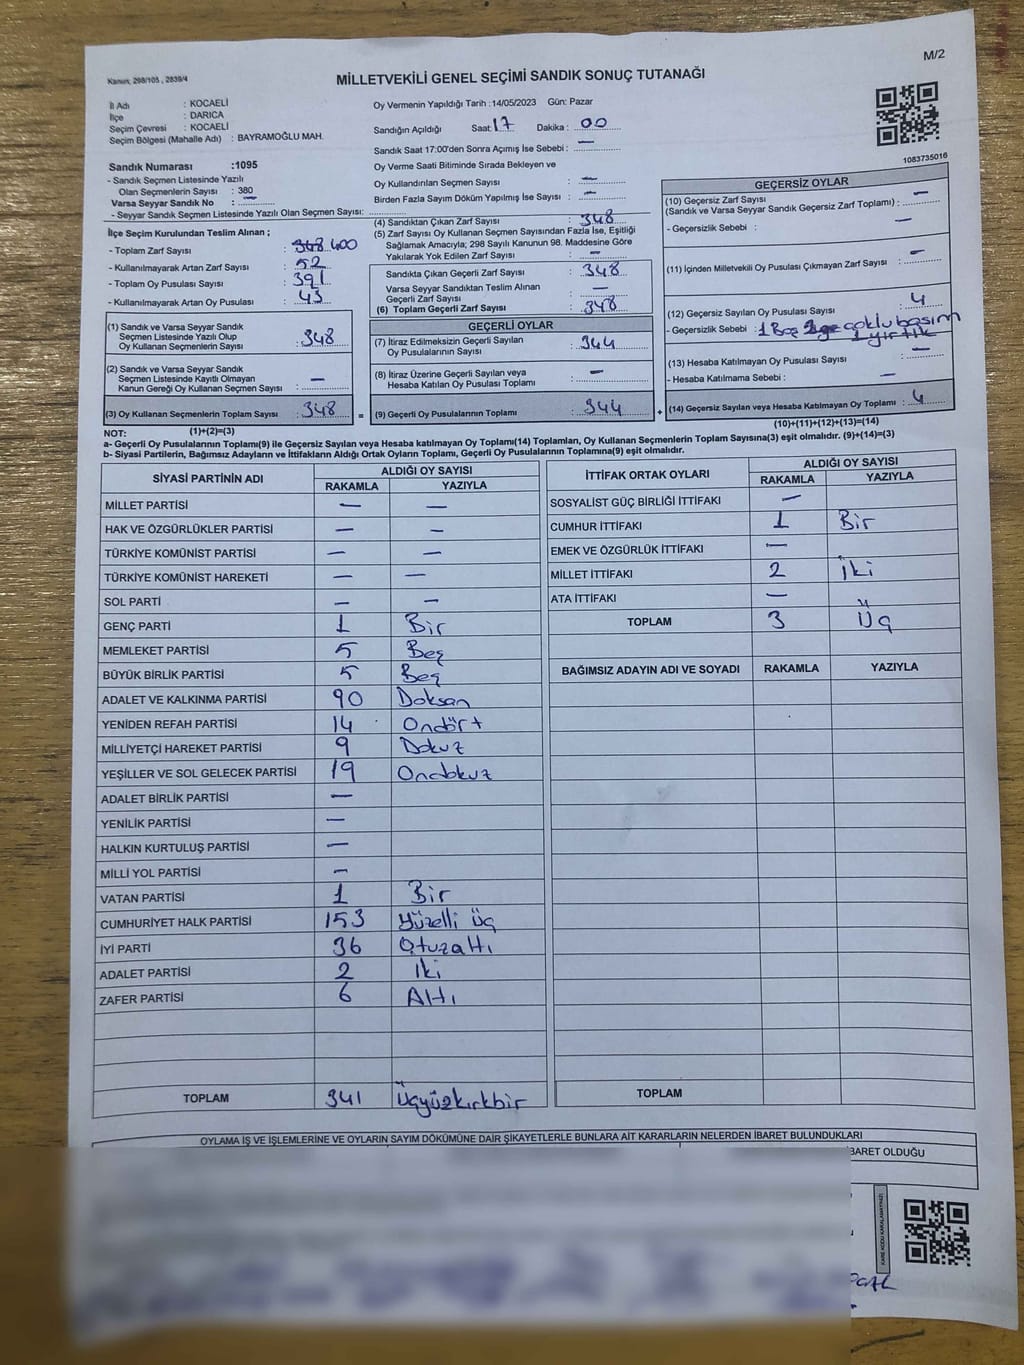 M/2
Kanun; 298/105 , 2839/4
MİLLETVEKİLİ GENEL SEÇİMİ SANDIK SONUÇ TUTANAĞI
İl Adı : KOCAELİ
İlçe : DARICA
Seçim Çevresi : KOCAELİ
Seçim Bölgesi (Mahalle Adı) : BAYRAMOĞLU MAH.
Sandık Numarası :1095
- Sandık Seçmen Listesinde Yazılı
Olan Seçmenlerin Sayısı : 380
Varsa Seyyar Sandık No : —
- Seyyar Sandık Seçmen Listesinde Yazılı Olan Seçmen Sayısı:
İlçe Seçim Kurulundan Teslim Alınan ;
- Toplam Zarf Sayısı : 348 400
- Kullanılmayarak Artan Zarf Sayısı : 52
- Toplam Oy Pusulası Sayısı : 391
- Kullanılmayarak Artan Oy Pusulası : 43
(1) Sandık ve Varsa Seyyar Sandık
Seçmen Listesinde Yazılı Olup
Oy Kullanan Seçmenlerin Sayısı : 348
(2) Sandık ve Varsa Seyyar Sandık
Seçmen Listesinde Kayıtlı Olmayan
Kanun Gereği Oy Kullanan Seçmen Sayısı : —
(3) Oy Kullanan Seçmenlerin Toplam Sayısı : 348 =
(1)+(2)=(3)
Oy Vermenin Yapıldığı Tarih :14/05/2023 Gün: Pazar
Sandığın Açıldığı Saat: 17 Dakika : 00
Sandık Saat 17:00'den Sonra Açımış İse Sebebi : —
Oy Verme Saati Bitiminde Sırada Bekleyen ve
Oy Kullandırılan Seçmen Sayısı : —
Birden Fazla Sayım Döküm Yapılmış İse Sayısı : —
(4) Sandıktan Çıkan Zarf Sayısı : 348
(5) Zarf Sayısı Oy Kullanan Seçmen Sayısından Fazla İse, Eşitliği
Sağlamak Amacıyla; 298 Sayılı Kanunun 98. Maddesine Göre
Yakılarak Yok Edilen Zarf Sayısı : —
Sandıkta Çıkan Geçerli Zarf Sayısı : 348
Varsa Seyyar Sandıktan Teslim Alınan
Geçerli Zarf Sayısı : —
(6) Toplam Geçerli Zarf Sayısı : 348
GEÇERLİ OYLAR
(7) İtiraz Edilmeksizin Geçerli Sayılan
Oy Pusulalarının Sayısı : 344
(8) İtiraz Üzerine Geçerli Sayılan veya
Hesaba Katılan Oy Pusulası Toplamı : —
(9) Geçerli Oy Pusulalarının Toplamı : 344 +
1083735016
GEÇERSİZ OYLAR
(10) Geçersiz Zarf Sayısı
(Sandık ve Varsa Seyyar Sandık Geçersiz Zarf Toplamı) : —
- Geçersizlik Sebebi : —
(11) İçinden Milletvekili Oy Pusulası Çıkmayan Zarf Sayısı : —
(12) Geçersiz Sayılan Oy Pusulası Sayısı : 4
- Geçersizlik Sebebi : 1 Boş çoklu basım
1 yırtık
(13) Hesaba Katılmayan Oy Pusulası Sayısı : —
- Hesaba Katılmama Sebebi : —
(14) Geçersiz Sayılan veya Hesaba Katılmayan Oy Toplamı : 4
(10)+(11)+(12)+(13)=(14)
NOT:
a- Geçerli Oy Pusulalarının Toplamı(9) ile Geçersiz Sayılan veya Hesaba katılmayan Oy Toplamı(14) Toplamları, Oy Kullanan Seçmenlerin Toplam Sayısına(3) eşit olmalıdır. (9)+(14)=(3)
b- Siyasi Partilerin, Bağımsız Adayların ve İttifakların Aldığı Ortak Oyların Toplamı, Geçerli Oy Pusulalarının Toplamına(9) eşit olmalıdır.
SİYASİ PARTİNİN ADI ALDIĞI OY SAYISI
RAKAMLA YAZIYLA
MİLLET PARTİSİ — —
HAK VE ÖZGÜRLÜKLER PARTİSİ — —
TÜRKİYE KOMÜNİST PARTİSİ — —
TÜRKİYE KOMÜNİST HAREKETİ — —
SOL PARTİ — —
GENÇ PARTİ 1 Bir
MEMLEKET PARTİSİ 5 Beş
BÜYÜK BİRLİK PARTİSİ 5 Beş
ADALET VE KALKINMA PARTİSİ 90 Doksan
YENİDEN REFAH PARTİSİ 14 Ondört
MİLLİYETÇİ HAREKET PARTİSİ 9 Dokuz
YEŞİLLER VE SOL GELECEK PARTİSİ 19 Ondokuz
ADALET BİRLİK PARTİSİ —
YENİLİK PARTİSİ —
HALKIN KURTULUŞ PARTİSİ —
MİLLİ YOL PARTİSİ —
VATAN PARTİSİ 1 Bir
CUMHURİYET HALK PARTİSİ 153 Yüzelli üç
İYİ PARTİ 36 Otuzaltı
ADALET PARTİSİ 2 İki
ZAFER PARTİSİ 6 Altı
TOPLAM 341 Üçyüzkırkbir
İTTİFAK ORTAK OYLARI ALDIĞI OY SAYISI
RAKAMLA YAZIYLA
SOSYALİST GÜÇ BİRLİĞİ İTTİFAKI —
CUMHUR İTTİFAKI 1 Bir
EMEK VE ÖZGÜRLÜK İTTİFAKI —
MİLLET İTTİFAKI 2 İki
ATA İTTİFAKI —
TOPLAM 3 Üç
BAĞIMSIZ ADAYIN ADI VE SOYADI RAKAMLA YAZIYLA
TOPLAM
OYLAMA İŞ VE İŞLEMLERİNE VE OYLARIN SAYIM DÖKÜMÜNE DAİR ŞİKAYETLERLE BUNLARA AİT KARARLARIN NELERDEN İBARET BULUNDUKLARI
İBARET OLDUĞU